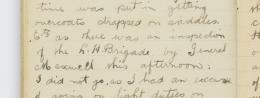 time was put in getting
overcoats strapped on saddles.
6th as there was an inspection
of the L.H. Brigade by General
Maxwell this afternoon.
I did not go, as I had an excuse
of going on light duties on